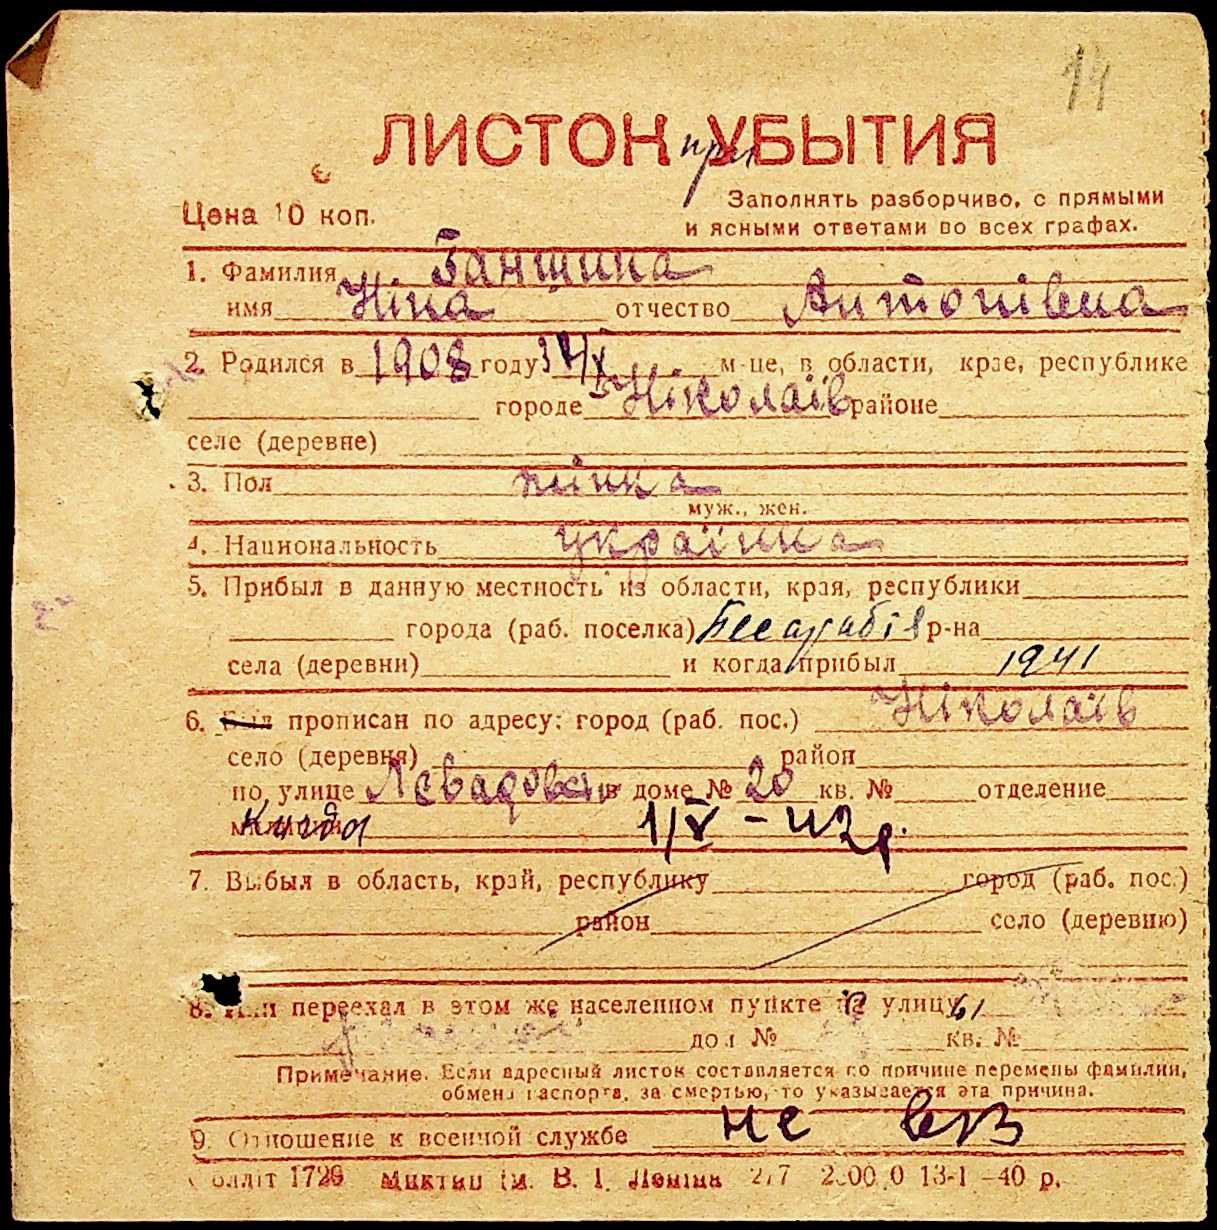 14
ЛИСТОК при УБЫТИЯ
Цена 10 коп.
Заполнять разборчиво, с прямыми
и ясными ответами во всех графах.
1. Фамилия Ганшина
имя Ніна отчество Антонівна
2. Родился в 1908 году м-це, в области, крае, республике
городе Ніколаїв районе
селе (деревне)
3. Пол жінка
муж., жен.
4. Национальность українка
5. Прибыл в данную местность из области, края, республики
города (раб. поселка) Бесарабія р-на
села (деревни) и когда прибыл 1941
6. Был прописан по адресу: город (раб. пос.) Ніколаїв
село (деревня) район
по улице в доме № 20 кв. № отделение
милиции 1/V - 42 р.
7. Выбыл в область, край, республику город (раб. пос.)
район село (деревню)
8. Или переехал в этом же населенном пункте на улицу
дом № кв. №
Примечание. Если адресный листок составляется по причине перемены фамилии,
обмена паспорта, за смертью, то указывается эта причина.
9. Отношение к военной службе не в/з
1729 им. В. І. Леніна 13-І -40 р.